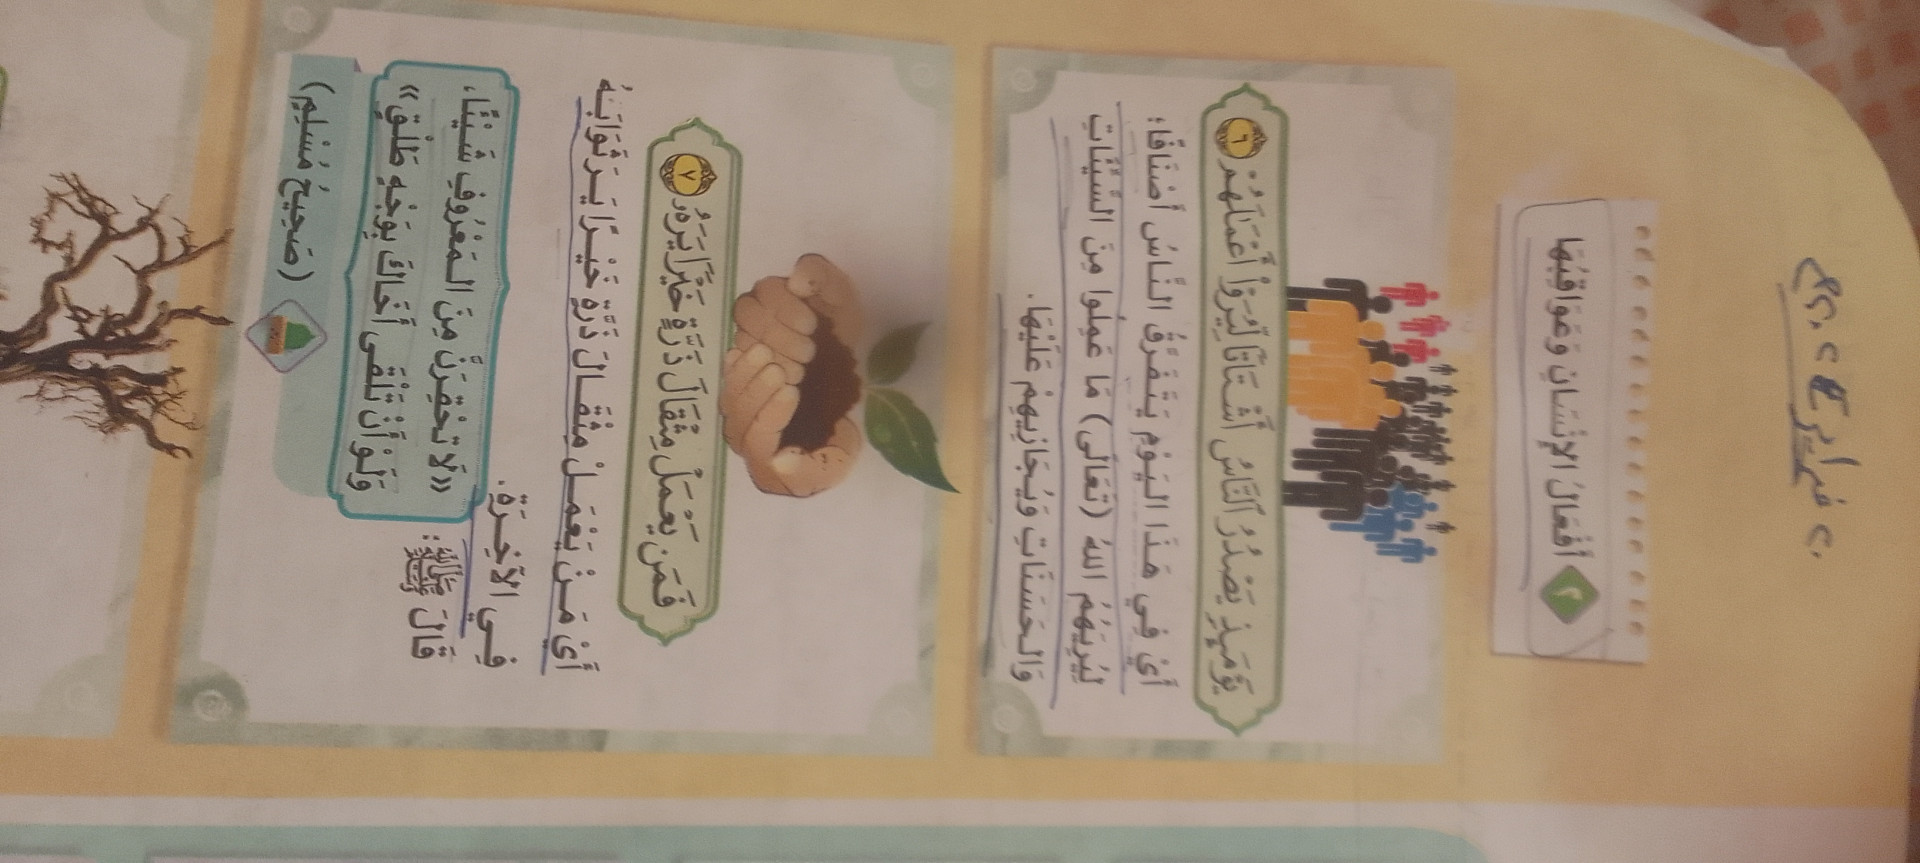 ٢ أَفْعَالُ الإِنْسَانِ وَعَوَاقِبُهَا
يَوْمَئِذٍ يَصْدُرُ ٱلنَّاسُ أَشْتَاتًا لِّيُرَوْا۟ أَعْمَٰلَهُمْ ٦
أَيْ فِي هَذَا اليَوْمِ يَتَفَرَّقُ النَّاسُ أَصْنَافًا؛
لِيُرِيَهُمُ اللهُ (تَعَالَى) مَا عَمِلُوا مِنَ السَّيِّئَاتِ
وَالحَسَنَاتِ وَيُجَازِيهِمْ عَلَيْهَا.
فَمَن يَعْمَلْ مِثْقَالَ ذَرَّةٍ خَيْرًا يَرَهُۥ ٧
أَيْ مَنْ يَعْمَلْ مِثْقَالَ ذَرَّةٍ خَيْرًا يَرَ ثَوَابَهُ
فِي الآخِرَةِ.
قَالَ ﷺ:
«لَا تَحْقِرَنَّ مِنَ المَعْرُوفِ شَيْئًا،
وَلَوْ أَنْ تَلْقَى أَخَاكَ بِوَجْهٍ طَلْقٍ»
(صَحِيحُ مُسْلِمٍ)